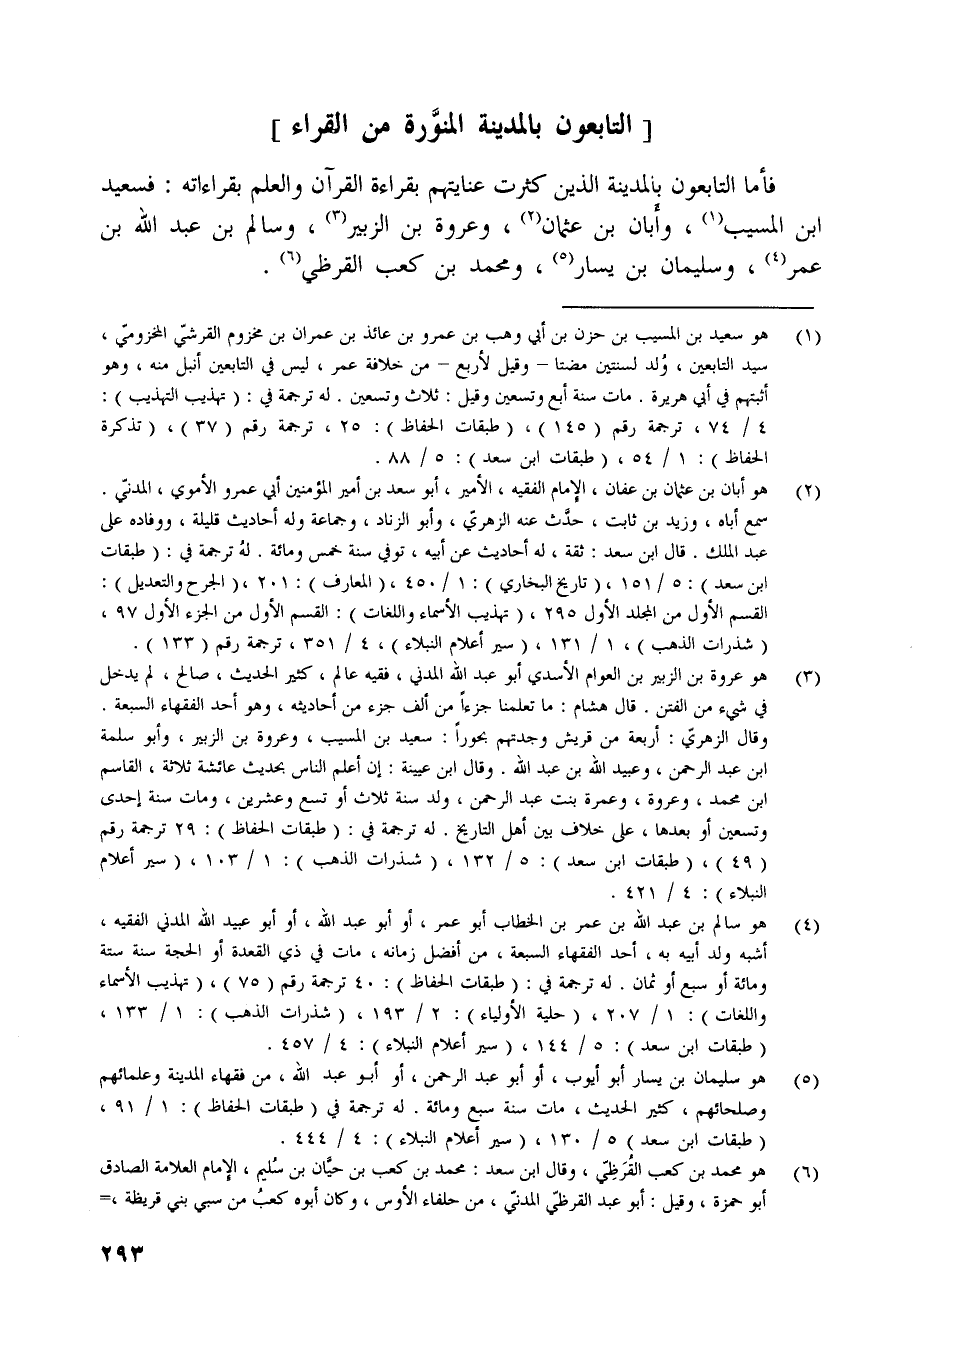 [ التابعون بالمدينة المنوَّرة من القراء ]
فأما التابعون بالمدينة الذين كثرت عنايتهم بقراءة القرآن والعلم بقراءاته : فسعيد
ابن المسيب(١) ، وأَبان بن عثمان(٢) ، وعروة بن الزبير(٣) ، وسالم بن عبد الله بن
عمر(٤) ، وسليمان بن يسار(٥) ، ومحمد بن كعب القرظي(٦) .
(١) هو سعيد بن المسيب بن حزن بن أبي وهب بن عمرو بن عائذ بن عمران بن مخزوم القرشيّ المخزوميّ ،
سيد التابعين ، وُلد لسنتين مضتا – وقيل لأربع – من خلافة عمر ، ليس في التابعين أنبل منه ، وهو
أثبتهم في أبي هريرة . مات سنة أبع وتسعين وقيل : ثلاث وتسعين . له ترجمة في : ( تهذيب التهذيب ) :
٤ / ٧٤ ، ترجمة رقم ( ١٤٥ ) ، ( طبقات الحفاظ ) : ٢٥ ، ترجمة رقم ( ٣٧ ) ، ( تذكرة
الحفاظ ) : ١ / ٥٤ ، ( طبقات ابن سعد ) : ٥ / ٨٨ .
(٢) هو أبان بن عثمان بن عفان ، الإمام الفقيه ، الأمير ، أبو سعد بن أمير المؤمنين أبي عمرو الأموي ، المدنّي .
سمع أباه ، وزيد بن ثابت ، حدَّث عنه الزهريّ ، وأبو الزناد ، وجماعة وله أحاديث قليلة ، ووفاده على
عبد الملك . قال ابن سعد : ثقة ، له أحاديث عن أبيه ، توفي سنة خمس ومائة . لهُ ترجمة في : ( طبقات
ابن سعد ) : ٥ / ١٥١ ، ( تاريخ البخاري ) : ١ / ٤٥٠ ، ( المعارف ) : ٢٠١ ، ( الجرح والتعديل ) :
القسم الأول من المجلد الأول ٢٩٥ ، ( تهذيب الأسماء واللغات ) : القسم الأول من الجزء الأول ٩٧ ،
( شذرات الذهب ) ، ١ / ١٣١ ، ( سير أعلام النبلاء ) ، ٤ / ٣٥١ ، ترجمة رقم ( ١٣٣ ) .
(٣) هو عروة بن الزبير بن العوام الأسدي أبو عبد الله المدني ، فقيه عالم ، كثير الحديث ، صالح ، لم يدخل
في شيء من الفتن . قال هشام : ما تعلمنا جزءاً من ألف جزء من أحاديثه ، وهو أحد الفقهاء السبعة .
وقال الزهريّ : أربعة من قريش وجدتهم بحوراً : سعيد بن المسيب ، وعروة بن الزبير ، وأبو سلمة
ابن عبد الرحمن ، وعبيد الله بن عبد الله . وقال ابن عيينة : إن أعلم الناس بحديث عائشة ثلاثة ، القاسم
ابن محمد ، وعروة ، وعمرة بنت عبد الرحمن ، ولد سنة ثلاث أو تسع وعشرين ، ومات سنة إحدى
وتسعين أو بعدها ، على خلاف بين أهل التاريخ . له ترجمة في : ( طبقات الحفاظ ) : ٢٩ ترجمة رقم
( ٤٩ ) ، ( طبقات ابن سعد ) : ٥ / ١٣٢ ، ( شذرات الذهب ) : ١ / ١٠٣ ، ( سير أعلام
النبلاء ) : ٤ / ٤٢١ .
(٤) هو سالم بن عبد الله بن عمر بن الخطاب أبو عمر ، أو أبو عبد الله ، أو أبو عبيد الله المدني الفقيه ،
أشبه ولد أبيه به ، أحد الفقهاء السبعة ، من أفضل زمانه ، مات في ذي القعدة أو الحجة سنة ستة
ومائة أو سبع أو ثمان . له ترجمة في : ( طبقات الحفاظ ) : ٤٠ ترجمة رقم ( ٧٥ ) ، ( تهذيب الأسماء
واللغات ) : ١ / ٢٠٧ ، ( حلية الأولياء ) : ٢ / ١٩٣ ، ( شذرات الذهب ) : ١ / ١٣٣ ،
( طبقات ابن سعد ) : ٥ / ١٤٤ ، ( سير أعلام النبلاء ) : ٤ / ٤٥٧ .
(٥) هو سليمان بن يسار أبو أيوب ، أو أبو عبد الرحمن ، أو أبو عبد الله ، من فقهاء المدينة وعلمائهم
وصلحائهم ، كثير الحديث ، مات سنة سبع ومائة . له ترجمة في ( طبقات الحفاظ ) : ١ / ٩١ ،
( طبقات ابن سعد ) ٥ / ١٣٠ ، ( سير أعلام النبلاء ) : ٤ / ٤٤٤ .
(٦) هو محمد بن كعب القُرَظِيّ ، وقال ابن سعد : محمد بن كعب بن حيَّان بن سُليم ، الإمام العلامة الصادق
أبو حمزة ، وقيل : أبو عبد القرظيّ المدنّي ، من حلفاء الأوس ، وكان أبوه كعبُ من سبي بني قريظة ،=
٢٩٣